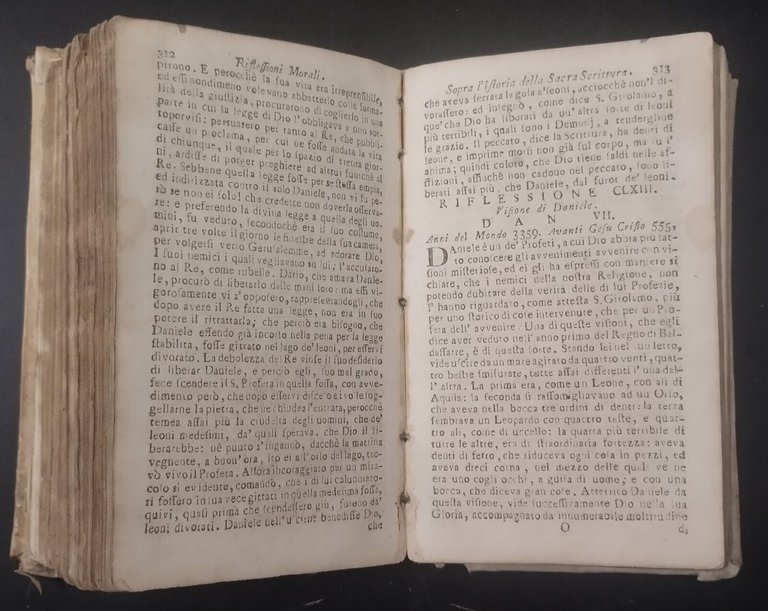 312
Riflessioni Morali.
pirono. E perocchè la sua vita era irreprensibile,
ed essi nondimeno volevano abbatterlo colle forma-
lità della giustizia, procurarono di coglierlo in una
parte in cui la legge di Dio l'obbligava a non sot-
toporvisi: persuasero per tanto al Re, che pubbli-
casse un proclama, per cui ne fosse andata la vita
di chiunque, il quale per lo spazio di trenta gior-
ni, ardisse di porger preghiere ad altri fuorchè il
Re. Sebbene quella legge fosse per se stessa empia,
ed indirizzata contro il solo Daniele, non vi fu pe-
rò se non ei solo! che credette non doversi osserva-
re: e preferendo la divina legge a quella degli uo-
mini, fu veduto, secondochè era il suo costume,
aprir tre volte il giorno le finestre della sua camera,
per volgersi verso Gerusalemme, ad adorare Dio.
I suoi nemici i quali vegliavano su lui, l'accusaro-
no al Re, come rubelle. Dario, che amava Danie-
le, procurò di liberarlo dalle mani loro: ma essi vi-
gorosamente vi s'opposero, rappresentandogli, che
dopo avere il Re fatta una legge, non era in suo
potere il ritrattarla; che perciò era bisogno, che
Daniele essendo già incorso nella pena per la legge
stabilita, fosse gittato nel lago de' leoni, per esservi
divorato. La debolezza del Re vinse il suo desiderio
di liberar Daniele, e perciò egli, suo mal grado,
fece scendere il S. Profeta in quella fossa, con avve-
dimento però, che dopo esservi disceso ei vo le sug-
gellarne la pietra, che ne chiudea l'entrata, perocchè
temea assai più la crudeltà degli uomini, che de'
leoni medesimi, da' quali sperava, che Dio il li-
berarebbe: nè punto s'ingannò, dacchè la mattina
vegnente, a buon'ora, ito ei all'orlo del lago, tro-
vò vivo il Profeta. Allora incoraggiato per un mira-
colo sì evidente, comandò, che i di lui calunniato-
ri fossero in sua vece gittati in quella medesima fossa,
quivi, quasi prima che scendessero giù, furono da'
leoni divorati. Daniele nell'uscirne benedisse Dio,
che
Sopra l'Istoria della Sacra Scrittura. 313
che aveva serrata la gola a'leoni, acciocchè non'l di-
vorassero: ed insegnò, come dice S. Girolamo, a
que' che Dio ha liberati da un'altra sorte di leoni
più terribili, i quali sono i Demonj, a rendergline
le grazie. Il peccato, dice la Scrittura, ha denti di
leone, e imprime morsi non già sul corpo, ma su l'
anima; quindi coloro, che Dio tiene saldi nelle af-
flizioni, affinchè non cadono nel peccato, sono li-
berati assai più, che Daniele, dal furor de' leoni.
RIFLESSIONE CLXIII.
Visione di Daniele.
DAN VII.
Anni del Mondo 3359. Avanti Gesu Cristo 555,
DAniele è un de' Profeti, a cui Dio abbia più fat-
to conoscere gli avvenimenti avvenire con vi-
sioni misteriose, ed ei gli ha espressi con maniere sì
chiare, che i nemici della nostra Religione, non
potendo dubitare della verità delle di lui Profezie,
l'hanno riguardato, come attesta S. Girolamo, più
per uno storico di cose intervenute, che per un Pro-
feta dell'avvenire. Una di queste visioni, che egli
dice aver veduto nell'anno primo del Regno di Bal-
dassarre, è di questa sorte. Stando lei nel suo letto,
vide uscire da un mare agitato da quattro venti, quat-
tro bestie smisurate, tutte assai differenti l'una dal-
l'altra. La prima era, come un Leone, con ali di
Aquila: la seconda si rassomigliava ad un Orso,
che aveva nella bocca tre ordini di denti: la terza
sembrava un Leopardo con quattro teste, e quat-
tro ali, come di uccello: la quarta più terribile di
tutte le altre, era di straordinaria fortezza: aveva
denti di ferro, che riduceva ogni cosa in pezzi, ed
aveva dieci corna, nel mezzo delle quali ve ne
era uno cogli occhi, a guisa di uomo; e con una
bocca, che diceva gran cose. Atterrito Daniele da
questa visione, vide successivamente Dio nella sua
Gloria, accompagnato da innumerabile moltitudine
O di